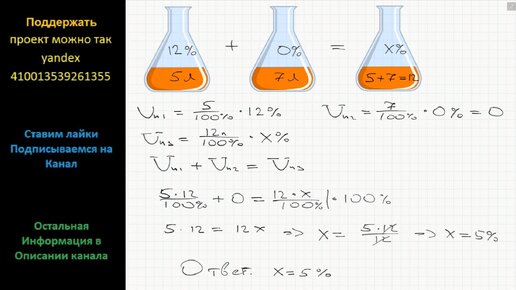 Поддержать
проект можно так
yandex
410013539261355
Ставим лайки
Подписываемся на
Канал
Остальная
Информация в
Описании канала
12% + 0% = X%
5л 7л 5+7=12
Uп1 = 5/100% · 12% Uп2 = 7/100% · 0% = 0
Uп3 = 12л/100% · X%
Uп1 + Uп2 = Uп3
5·12/100% + 0 = 12·x/100% | · 100%
5·12 = 12x => x = 5·12/12 => x = 5%
Ответ. x=5%